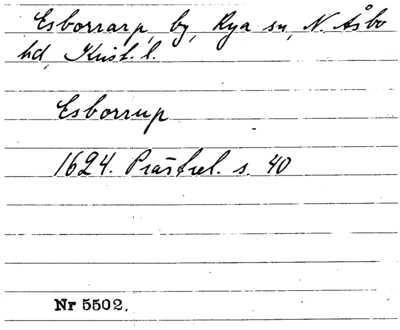 Esborrarp, by, Rya sn, N. Åsbo
hd, Krist. l.
Esborrup
1624. Prästrel. s. 40
Nr 5502.